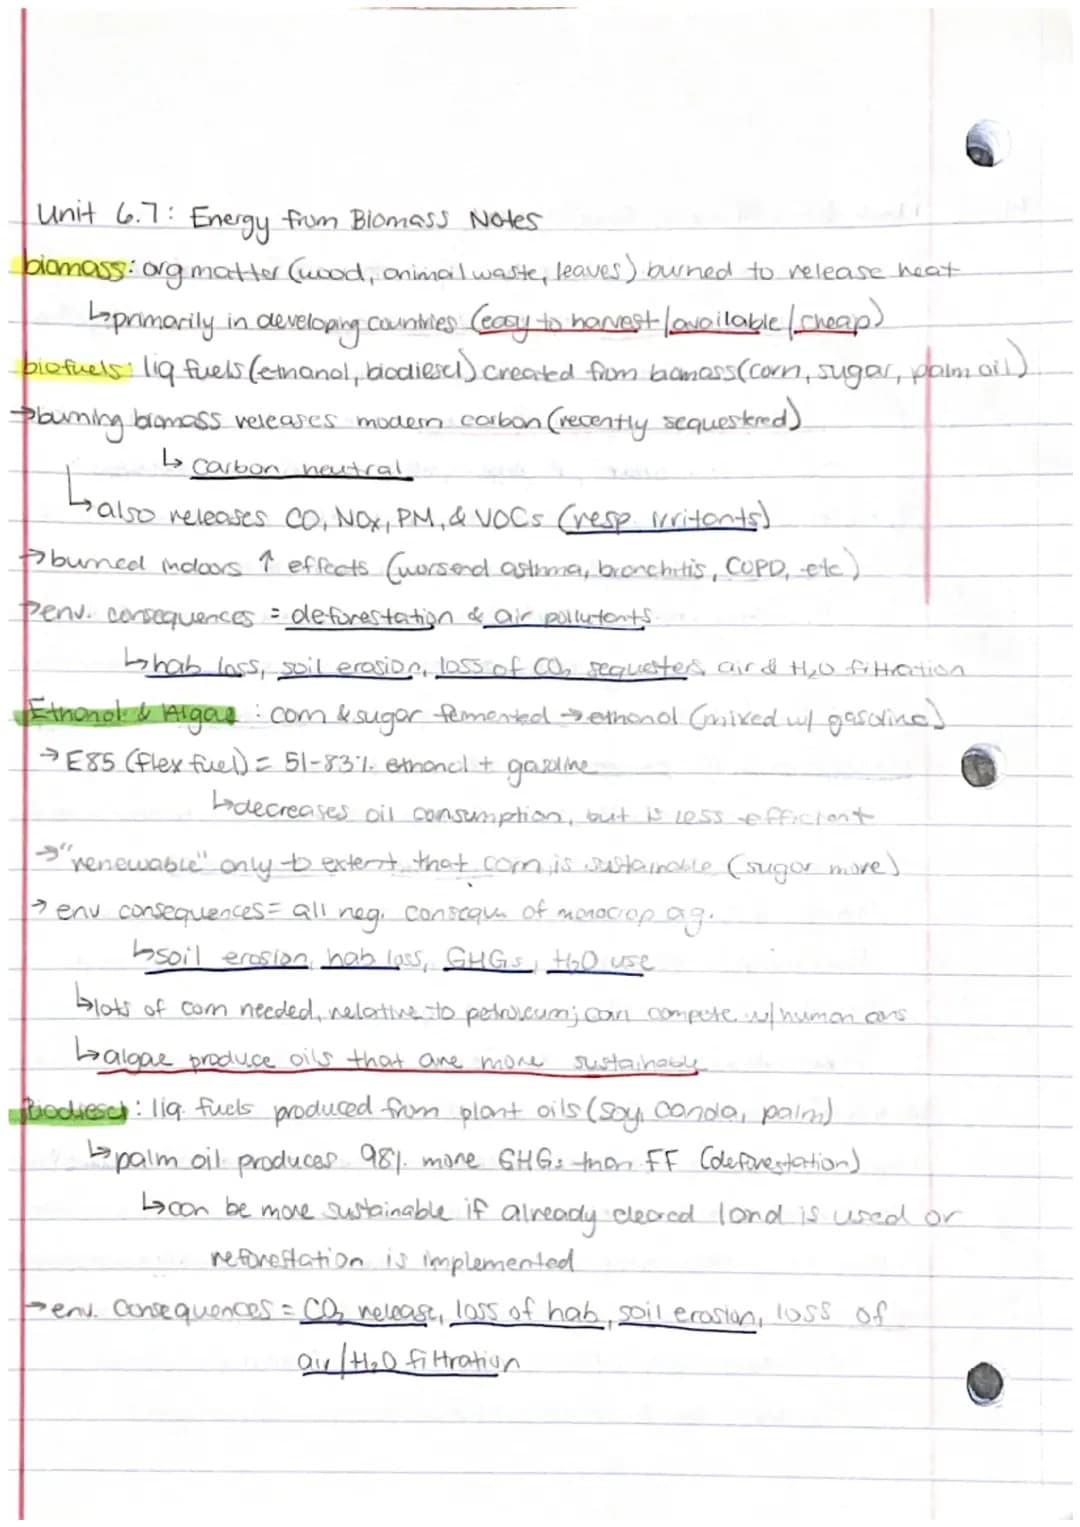 Unit 6.7: Energy from Biomass Notes
biomass: org matter (wood, animal waste, leaves) burned to release heat
↳primarily in developing countries (easy to harvest/available/cheap)
biofuels: liq fuels (ethanol, biodiesel) created from biomass (corn, sugar, palm oil)
→burning biomass releases modern carbon (recently sequestered)
↳ carbon neutral
↳also releases CO, NOx, PM, & VOCs (resp. irritants)
→burned indoors ↑ effects (worsend asthma, bronchitis, COPD, etc.)
→env. consequences = deforestation & air pollutants
↳hab loss, soil erosion, loss of CO₂ sequesters, air & H₂O filtration
Ethanol & Algae : corn & sugar fermented → ethanol (mixed w/ gasoline)
→ E85 (flex fuel) = 51-83% ethanol + gasoline
↳decreases oil consumption, but is less efficient
→"renewable" only to extent that corn is sustainable (sugar more)
→ env consequences = all neg. consequ of monocrop ag.
↳soil erosion, hab loss, GHGs, H₂O use
↳lots of corn needed, relative to petroleum; can compete w/ human cons
↳algae produce oils that are more sustainable
Biodiesel: liq. fuels produced from plant oils (soy, canola, palm)
↳palm oil produces 98% more GHGs than FF (deforestation)
↳can be more sustainable if already cleared land is used or
reforestation is implemented
→env. consequences = CO₂ release, loss of hab, soil erosion, loss of
air/H₂O filtration